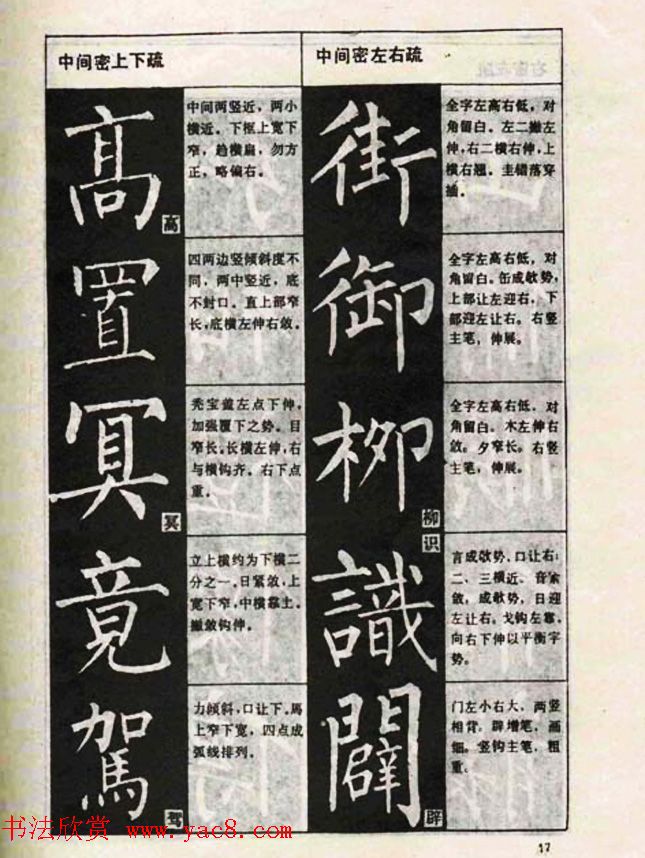 中间密上下疏
高
高
中间两竖近，两小
横近。下框上宽下
窄，趋横扁，勿方
正，略偏右。
置
四两边竖倾斜度不
同，两中竖近，底
不封口。直上部窄
长，底横左伸右敛。
冥
冥
秃宝盖左点下伸，
加强覆下之势。目
窄长。长横左伸，右
与横钩齐。右下点
重。
竟
立上横约为下横二
分之一。日紧敛，上
宽下窄，中横靠上。
撇敛钩伸。
駕
驾
力倾斜，口让下。馬
上窄下宽，四点成
弧线排列。
中间密左右疏
街
全字左高右低，对
角留白。左二撇左
伸，右二横右伸，上
横右翘。圭错落穿
插。
御
全字左高右低，对
角留白。缶成欹势，
上部让左迎右，下
部迎左让右。右竖
主笔，伸展。
柳
柳
全字左高右低，对
角留白。木左伸右
敛。夕窄长。右竖
主笔，伸展。
識
识
言成欹势，口让右；
二、三横近。音紧
敛，成欹势，日迎
左让右。戈钩左靠，
向右下伸以平衡字
势。
闢
辟
门左小右大，两竖
相背。辟增笔，画
细。竖钩主笔，粗
重。
书法欣赏 www.yac8.com
17